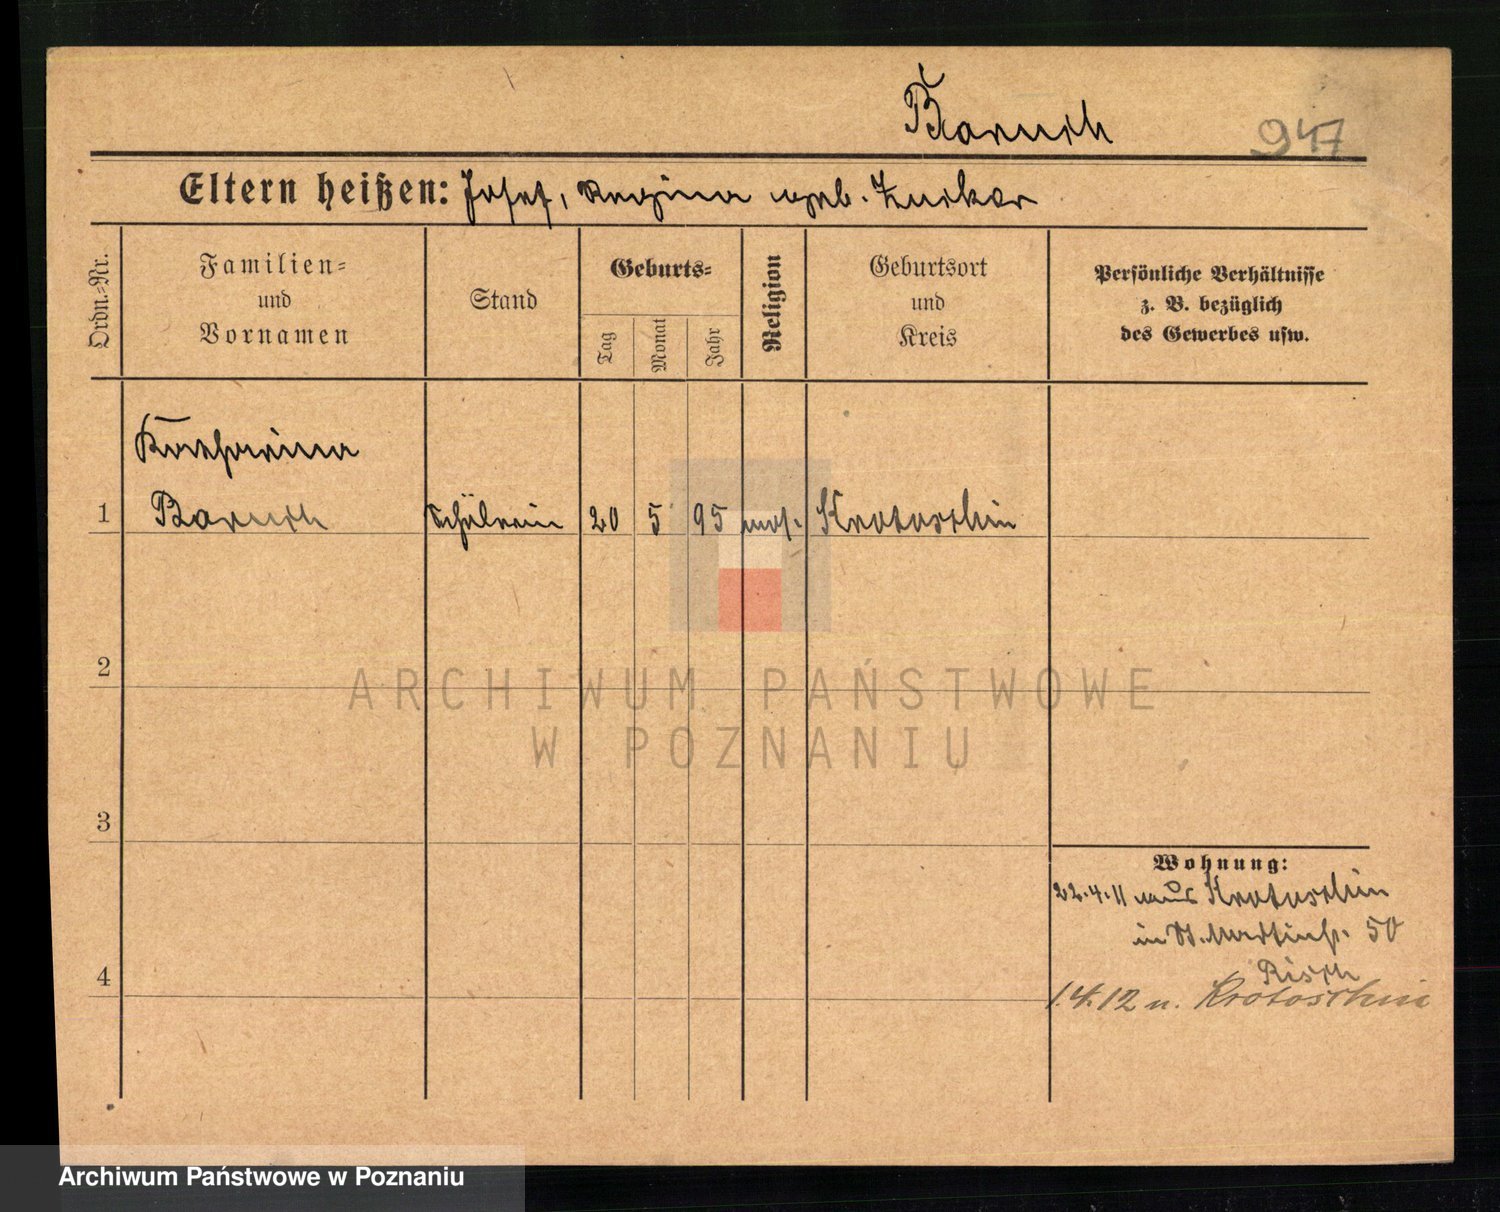 Baruch
947
Eltern heißen: Josef, Regina geb. Zucker
Ordn.-Nr.
Familien-
und
Vornamen
Stand
Geburts-
Tag
Monat
Jahr
Religion
Geburtsort
und
Kreis
Persönliche Verhältnisse
z. B. bezüglich
des Gewerbes usw.
Katharina
1 Baruch Schülerin 20 5 95 mos. Krotoschin
2
ARCHIWUM PAŃSTWOWE
W POZNANIU
3
Wohnung:
22.4.11 aus Krotoschin
in St. Martinstr. 50
Risch
4
1.4.12 n. Krotoschin
Archiwum Państwowe w Poznaniu